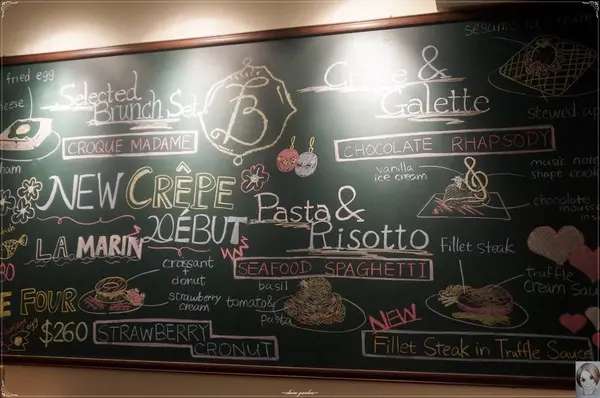 fried egg
cheese
ham
Selected
Brunch Set
CROQUE MADAME
B
Crêpe &
Galette
sesame ice cream
stewed ap
CHOCOLATE RHAPSODY
vanilla
ice cream
music note
shape cook
chocolate
mousse
insi
NEW CRÊPE
DÉBUT
LA MARIN
Pasta &
Risotto
SEAFOOD SPAGHETTI
basil
tomato &
Pasta
crossant
+
donut
strawberry
cream
80
E FOUR
$260
STRAWBERRY
CRONUT
Fillet steak
truffle
cream sauc
NEW
Fillet Steak in Truffle Sauce